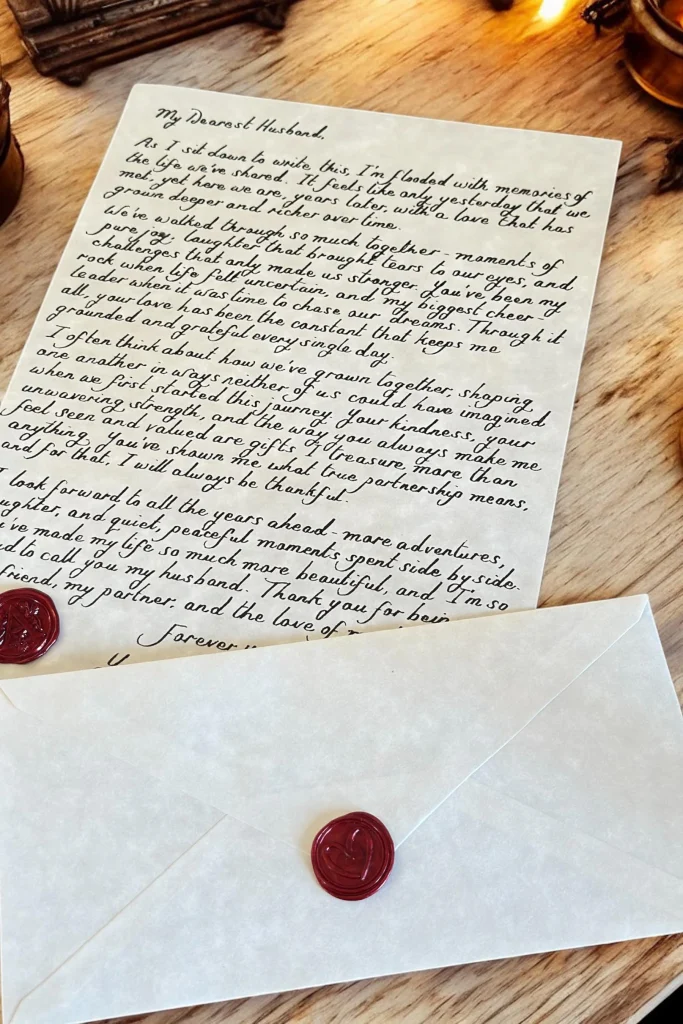 My Dearest Husband,
As I sit down to write this, I'm flooded with memories of
the life we've shared. It feels like only yesterday that we
met, yet here we are, years later, with a love that has
grown deeper and richer over time.
We've walked through so much together - moments of
pure joy, laughter that brought tears to our eyes, and
challenges that only made us stronger. You've been my
rock when life felt uncertain, and my biggest cheer-
leader when it was time to chase our dreams. Through it
all, your love has been the constant that keeps me
grounded and grateful every single day.
I often think about how we've grown together, shaping
one another in ways neither of us could have imagined
when we first started this journey. Your kindness, your
unwavering strength, and the way you always make me
feel seen and valued are gifts I treasure more than
anything. You've shown me what true partnership means,
and for that, I will always be thankful.
I look forward to all the years ahead - more adventures,
ughter, and quiet, peaceful moments spent side by side.
u've made my life so much more beautiful, and I'm so
d to call you my husband. Thank you for bein
friend, my partner, and the love of
Forever